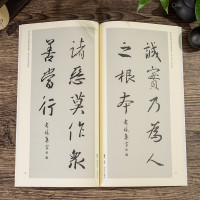 誠實乃為人
之根本
諸惡莫作衆
善當行